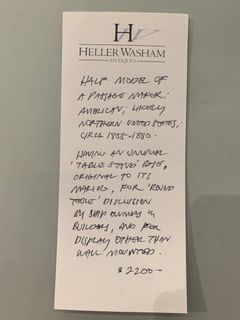 H
HELLER WASHAM
ANTIQUES
HALF MODEL OF
A PASSAGE MAKER,
AMERICAN, LIKELY
NORTHERN UNITED STATES,
CIRCA 1865-1880.
HAVING AN UNUSUAL
'TABLE STAND' BASE,
ORIGINAL TO ITS
MAKING, FOR 'ROUND
TABLE' DISCUSSION
BY SHIP OWNERS &
BUILDERS, AND FOR
DISPLAY OTHER THAN
WALL MOUNTED.
$2200-